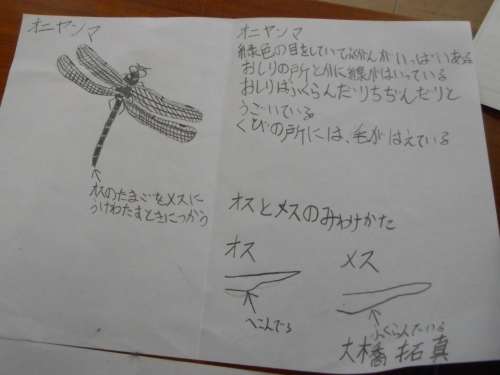 オニヤンマ
オスのたまごをメスに
うけわたすときにつかう
オニヤンマ
緑色の目をしていて
おしりの所とかに線がはいっている
おしりはふくらんだりちぢんだりと
うごいている
くびの所には、毛がはえている
オスとメスのみわけかた
オス
メス
へこんでる
ふくらんでいる
大橋 拓真